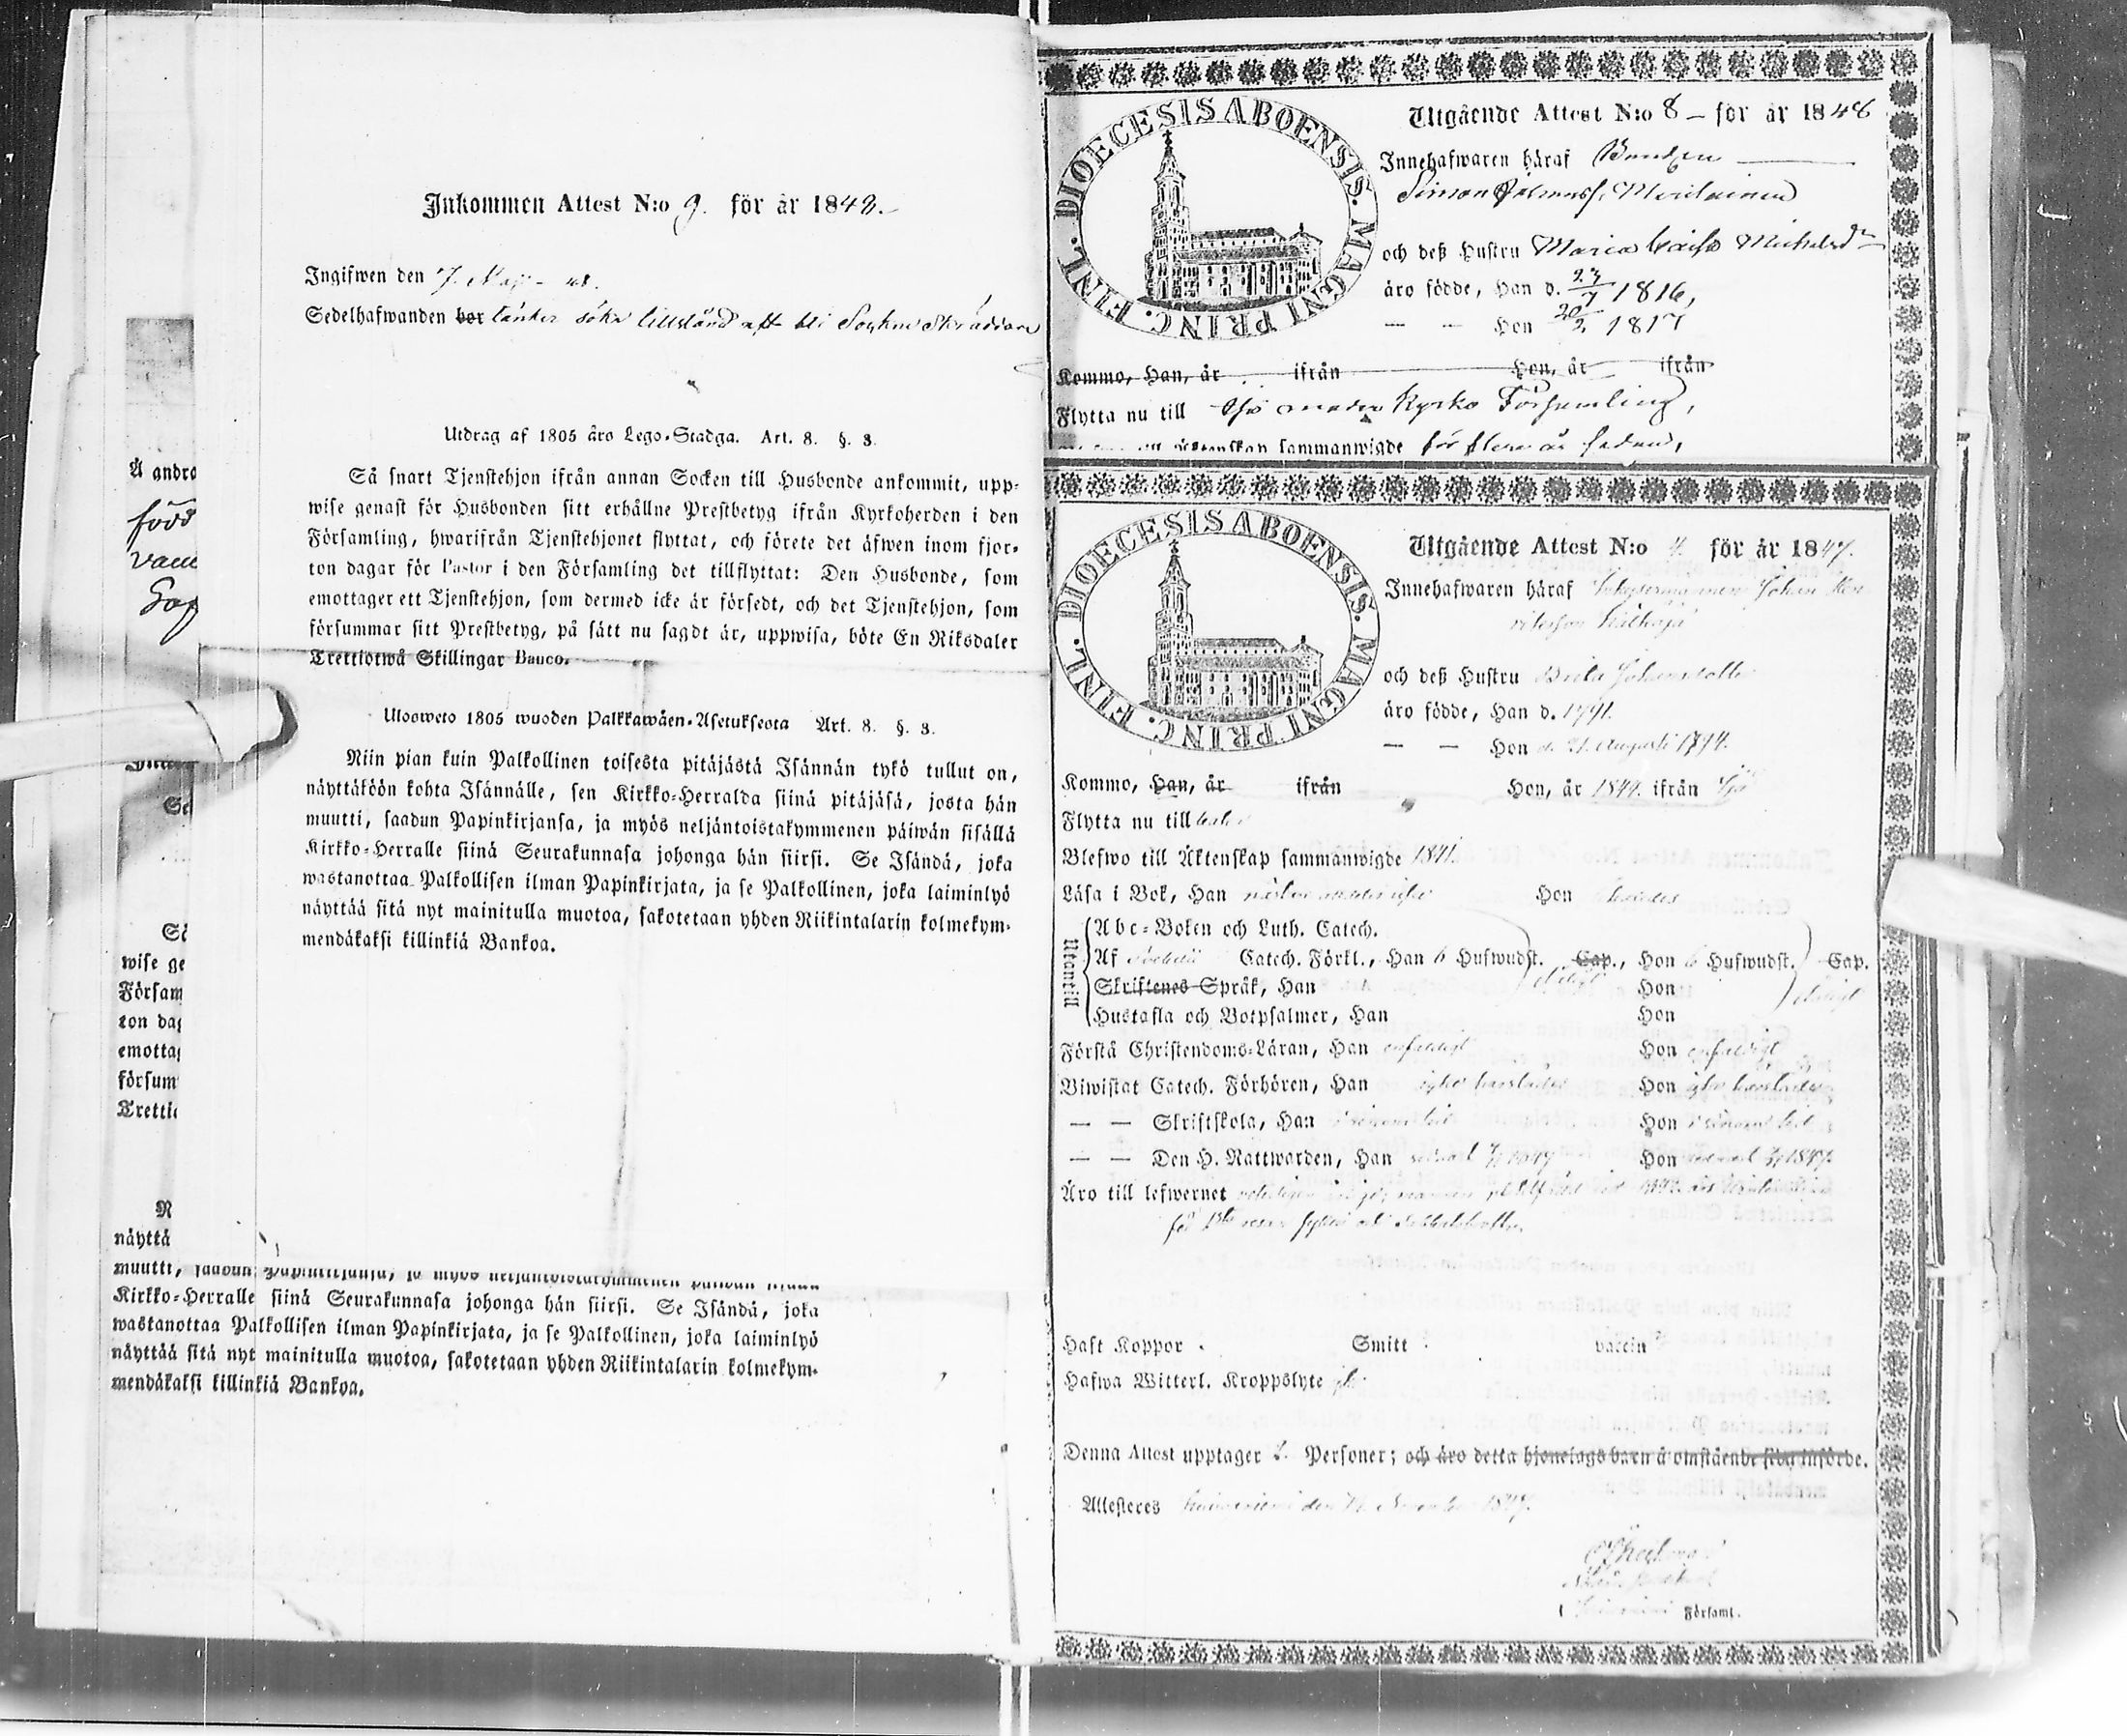 Inkommen Attest N:o 9. för år 1848.
Ingifwen den 7. Maji - 48.
Sedelhafwanden bor tänker söka tillstånd att bli Sockne Skräddare
Utdrag af 1805 års Lego-Stadga. Art. 8. §. 3.
Så snart Tjenstehjon ifrån annan Socken till Husbonde ankommit, upp-
wise genast för Husbonden sitt erhållne Prestbetyg ifrån Kyrkoherden i den
Församling, hwarifrån Tjenstehjonet flyttat, och förete det äfwen inom fjor-
ton dagar för Pastor i den Församling det tillflyttat: Den Husbonde, som
emottager ett Tjenstehjon, som dermed icke är försedt, och det Tjenstehjon, som
försummar sitt Prestbetyg, på sätt nu sagdt är, uppwisa, böte En Riksdaler
Trettiotwå Skillingar Banco.
Ulosweto 1805 wuoden Palkkawäen-Asetuksesta Art. 8. §. 3.
Niin pian kuin Palkollinen toisesta pitäjästä Isännän tykö tullut on,
näyttäköön kohta Isännälle, sen Kirkko-Herralda siinä pitäjäsä, josta hän
muutti, saadun Papinkirjansa, ja myös neljäntoistakymmenen päiwän sisällä
Kirkko-Herralle siinä Seurakunnasa johonga hän siirsi. Se Isändä, joka
wastanottaa Palkollisen ilman Papinkirjata, ja se Palkollinen, joka laiminlyö
näyttää sitä nyt mainitulla muotoa, sakotetaan yhden Riikintalarin kolmekym-
mendäkaksi killinkiä Bankoa.
Å andra
född
Gap
Så
wise ge
Försam
ton dag
emottag
försum
Tretti
N
näyttä
muutti, saadun Papinkirjansa, ja myös neljäntoistakymmenen päiwän sisällä
Kirkko-Herralle siinä Seurakunnasa johonga hän siirsi. Se Isändä, joka
wastanottaa Palkollisen ilman Papinkirjata, ja se Palkollinen, joka laiminlyö
näyttää sitä nyt mainitulla muotoa, sakotetaan yhden Riikintalarin kolmekym-
mendäkaksi killinkiä Bankoa.
DIOECESIS ABOENSIS. MAGNI PRINC. FINL.
Utgående Attest N:o 8 – för år 1848
Innehafwaren häraf Bonden
Simon Meriläinen
och deß Hustru Maria Caisa Michelsdr
äro födde, Han d. 23/7 1816,
— — Hon 20/2 1817
Kommo, Han, år ifrån Hon, år ifrån
Flytta nu till Ijo moder Kyrko Församling,
sammanwigde för flera år sedan,
DIOECESIS ABOENSIS. MAGNI PRINC. FINL.
Utgående Attest N:o 4 för år 1847.
Innehafwaren häraf Johan
och deß Hustru Brita Johansdotter
äro födde, Han d. 1791.
— — Hon d. 21. Augusti 1794.
Kommo, Han, år ifrån Hon, år 1841. ifrån Ijo
Flytta nu till
Blefwo till Äktenskap sammanwigde 1841.
Läsa i Bok, Han Hon
Utantill
Abc-Boken och Luth. Catech.
Af Catech. Förkl., Han 6 Hufwudst. Cap., Hon 6 Hufwudst. Cap.
Skriftenes Språk, Han Hon
Hustafla och Botpsalmer, Han Hon
Förstå Christendoms-Läran, Han enfaldigt Hon enfaldigt
Biwistat Catech. Förhören, Han Hon
— — Skriftskola, Han Hon
— — Den H. Nattwarden, Han Hon 1847.
Äro till lefwernet
Haft Koppor Smitt vaccin
Hafwa Witterl. Kroppslyte
Denna Attest upptager 2. Personer; och äro detta hjonelags barn å omstående sida införde.
Attesteres den November 1847.
Församl.